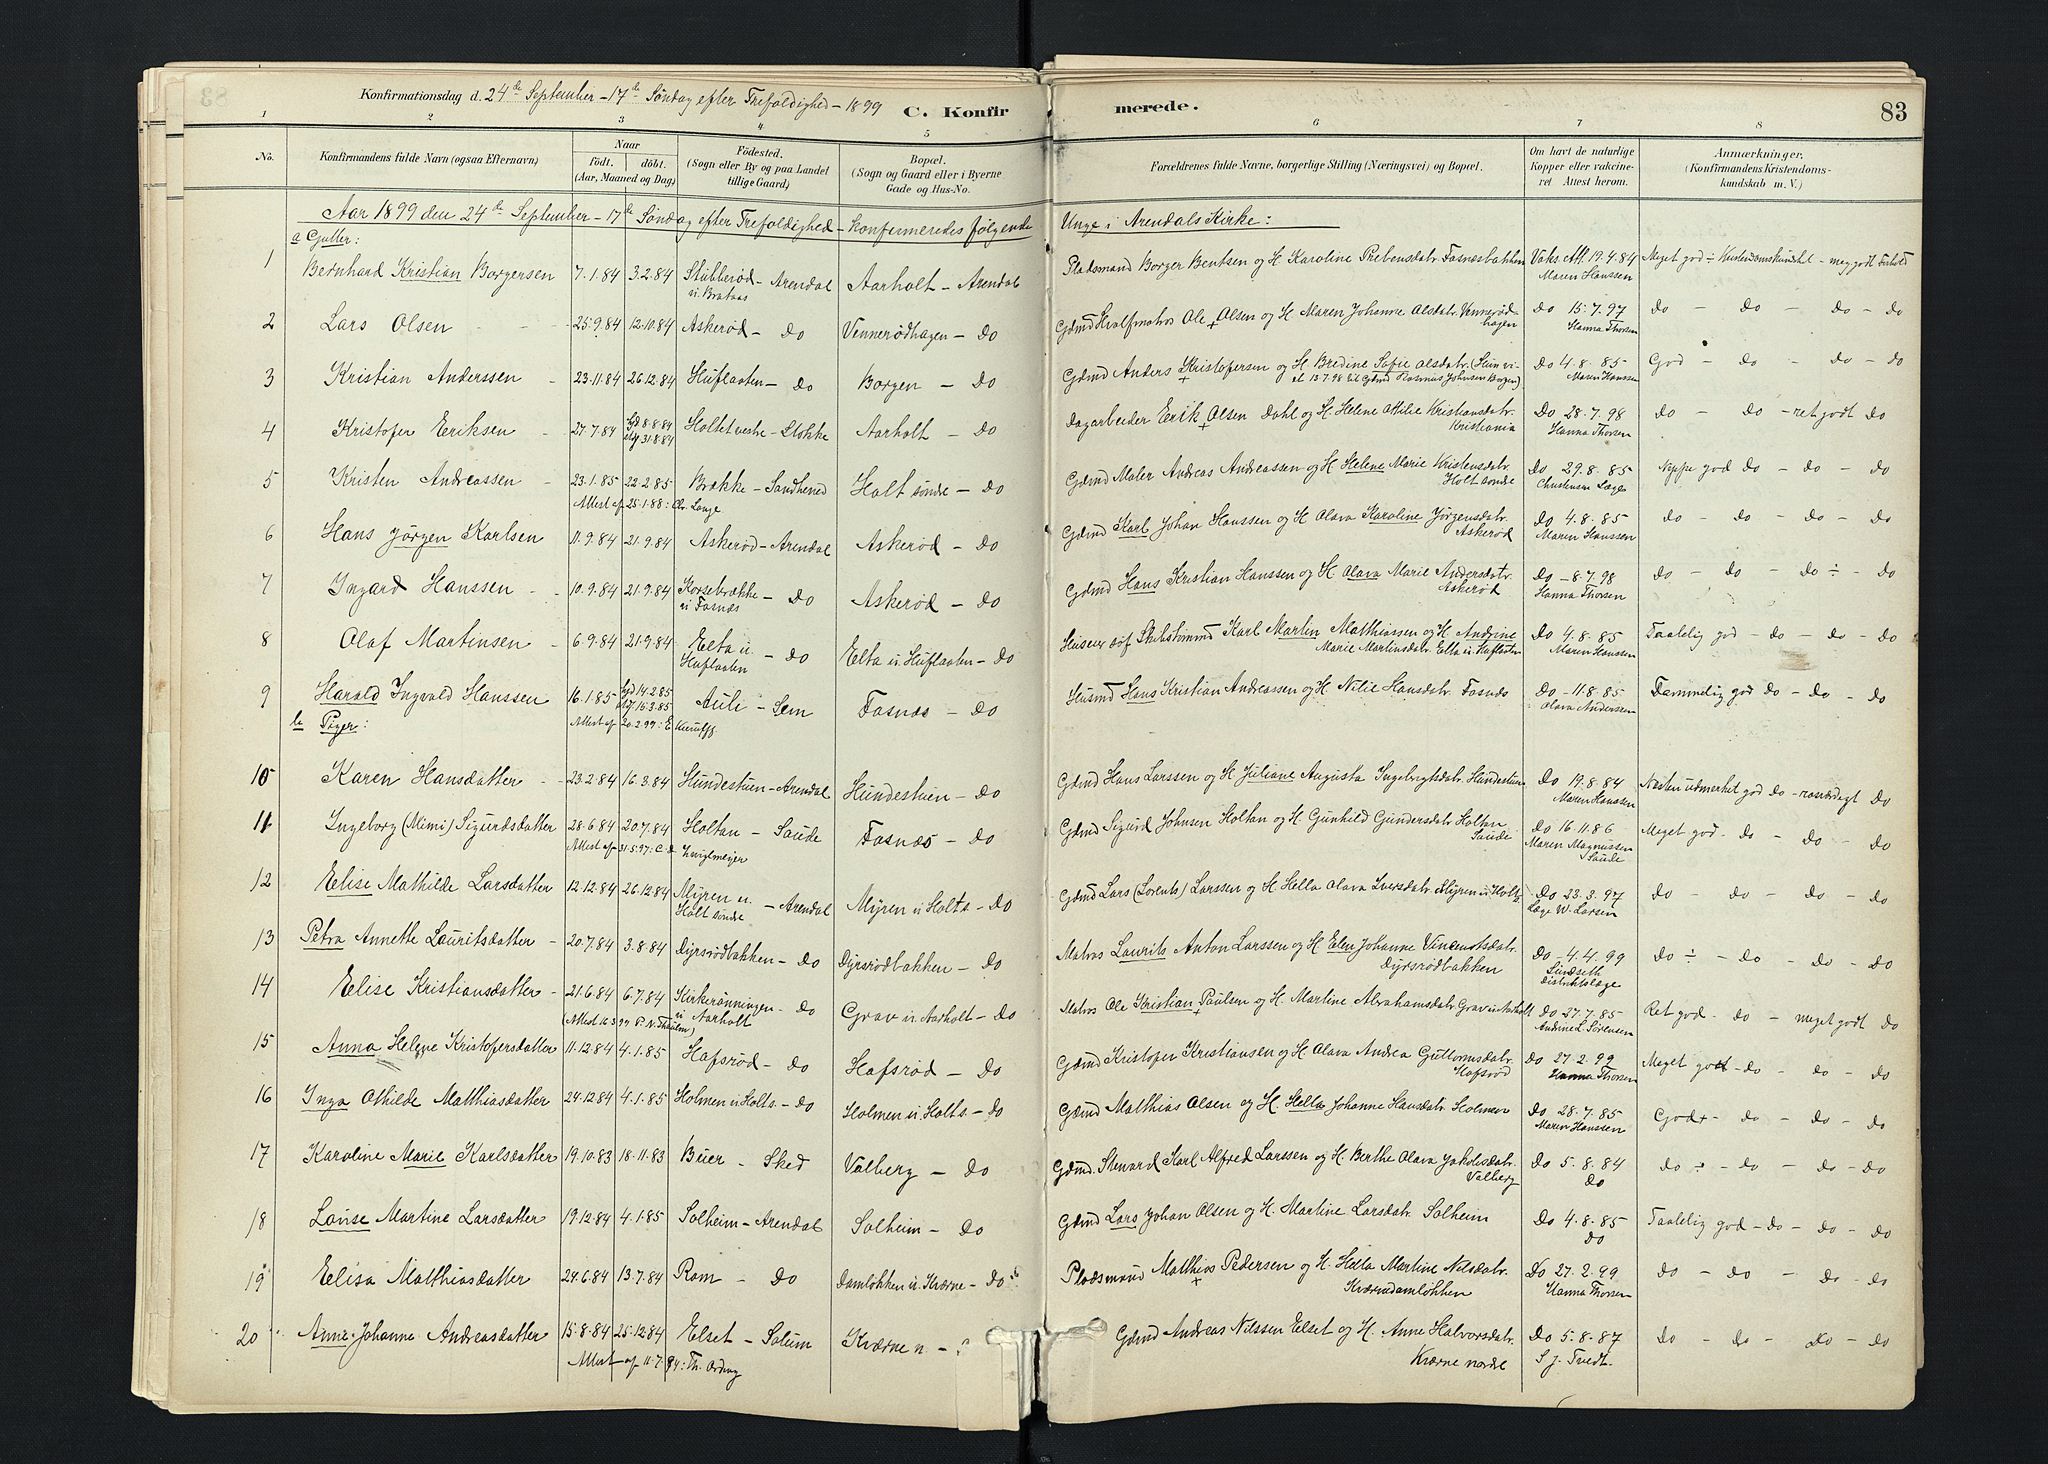 Konfirmationsdag d. 24de September - 17de Søndag efter Trefoldighed - 1899
C. Konfirmerede.
83
1 2 3 4 5 6 7 8
No.
Konfirmandens fulde Navn (ogsaa Efternavn)
Naar
født. døbt.
(Aar, Maaned og Dag)
Fødested.
(Sogn eller By og paa Landet tillige Gaard)
Bopæl.
(Sogn og Gaard eller i Byerne Gade og Hus-No.
Forældrenes fulde Navne, borgerlige Stilling (Næringsvei) og Bopæl.
Om havt de naturlige Kopper eller vakcineret Attest herom.
Anmærkninger.
(Konfirmandens Kristendomskundskab m. V.)
Aar 1899 den 24de September - 17de Søndag efter Trefoldighed - konfirmeredes følgende Unge i Arendals Kirke:
a Gutter:
1 Bernhard Kristian Borgersen 7.1.84 3.2.84 Stubberød - Arendal Aarholt - Arendal Pladsmand Borger Bentsen og H. Karoline Prebensdatr. Fosnesbakken Vaks Att. 19.9.84 Maren Hanssen Meget god ÷ Kristendomskundsk - meg godt Forhold
2 Lars Olsen 25.9.84 12.10.84 Askerød - do Vennerødhagen - do Ole + Olsen og H. Maren Johanne Olsdatr. Vennerødhagen do 15.7.97 Hanna Thorsen do - do - do - do
3 Kristian Anderssen 23.11.84 26.12.84 Huflaaten - do Borgen - do Gdmd Anders + Kristofersen og H. Bredine Sofie Olsdatr. do 4.8.85 Maren Hanssen God - do - do - do
4 Kristofer Eriksen 27.7.84 8.8.84 31.8.84 Holtet vestre - Stokke Aarholt - do Dagarbeider Erik + Olsen Dahl og H. Helene Otilie Kristiansdatr. Kristiania do 28.7.98 Hanna Thorsen do - do - ret godt do
5 Kristen Andreassen 23.1.85 22.2.85 Brække - Sandhered Holt søndre - do Gdmd Maler Andreas Andreassen og H. Helene Marie Kristensdatr. Holt søndre do 29.8.85 Christensen Læge Neppe god do - do - do
Attest af 25.1.88: Chr. Lange
6 Hans Jørgen Karlsen 11.9.84 21.9.84 Askerød - Arendal Askerød - do Gdmd Karl Johan Hanssen og H. Olava Karoline Jørgensdatr. Askerød do 4.8.85 Maren Hanssen do - do - do - do
7 Ingard Hanssen 10.9.84 21.9.84 Korsebrække u. Fosnæs - do Askerød - do Gdmd Hans Kristian Hanssen og H. Olava Marie Andersdatr. Askerød do - 8.7.98 Hanna Thorsen do - do - do ÷ - do
8 Olaf Martinsen 6.9.84 21.9.84 Elta u. Huflaaten - do Elta u. Huflaaten - do Karl Martin Matthiassen og H. Andrine Marie Martinsdatr. Elta u. Huflaaten do 4.8.85 Maren Hanssen Taalelig god - do - do - do
9 Harald Ingvald Hanssen 16.1.85 14.2.85 15.3.85 Auli - Sem Fosnæs - do Husmd Hans Kristian Andreassen og H. Nilie Hansdatr. Fosnæs do - 11.8.85 Olava Anderssen Temmelig god do - do - do
Attest af 20.2.99: E
b Piger:
10 Karen Hansdatter 23.2.84 16.3.84 Hundestuen - Arendal Hundestuen - do Gdmd Hans Larssen og H. Juliane Augusta Ingebrigtsdatr. Hundestuen do 19.8.84 Maren Hanssen Næsten udmerket god do - rosværdigt do
11 Ingeborg (Mimi) Sigurdsdatter 28.6.84 20.7.84 Holtan - Saude Fosnæs - do Gdmd Sigurd Johnsen Holtan og H. Gunhild Gundersdatr. Holtan Saude do 16.11.86 Maren Magnussen Saude Meget god - do - do - do
Attest af 31.5.97:
12 Elise Mathilde Larsdatter 12.12.84 26.12.84 Myren u. Holt søndre - Arendal Myren u. Holts - do Gdmd Lars (Lorents) Larssen og H. Hella Olava Iversdatr. Myren u. Holts do 23.3.97 Læge W. Larsen do - do - do - do
13 Petra Annette Lauritsdatter 20.7.84 3.8.84 Dyrsrødbakken - do Dyrsrødbakken - do Matros Laurits Anton Larssen og H. Elen Johanne Vincentsdatr. Dyrsrødbakken do - 4.4.99 Lundseth distriktslæge do ÷ - do - do - do
14 Elise Kristiansdatter 21.6.84 6.7.84 Kirkerønningen u Aarholt - do Grav u. Aarholt - do Matros Ole Kristian + Paulsen og H. Martine Abrahamsdatr Grav u Aarholt do 27.7.85 Andine L. Sørensen Ret god - do - meget godt do
15 Anna Helene Kristofersdatter 11.12.84 4.1.85 Hafsrød - do Hafsrød - do Gdmd Kristofer Kristiansen og H. Olava Andrea Guttormsdatr. Hafsrød do 27.2.99 Hanna Thorsen Meget godt - do - do - do
16 Inga Othilde Matthiasdatter 24.12.84 4.1.85 Holmen u. Holts. - do Holmen u. Holts - do Gdmd Matthias Olsen og H. Hella Johanne Hansdatr. Holmen do 28.7.85 Maren Hanssen God + - do - do - do
17 Karoline Marie Karlsdatter 19.10.83 18.11.83 Buer - Sked Valberg - do Gdmd. Steward Karl Alfred Larssen og H. Berthe Olava Jakobsdatr. Valberg do 5.8.84 do do ÷ - do - do - do
18 Louise Martine Larsdatter 19.12.84 4.1.85 Solheim - Arendal Solheim - do Gdmd Lars Johan Olsen og H. Martine Larsdatr. Solheim do 4.8.85 do Taalelig god - do - do - do
19 Elisa Matthiasdatter 24.6.84 13.7.84 Rom - do Damløkken u. Kværne - do Pladsmand Mathias + Pedersen og H. Hella Martine Nilsdatr. Kværnedamløkken do 27.2.99 Hanna Thorsen do - do - do - do
20 Anne Johanne Andreasdatter 15.8.84 25.12.84 Elset - Solum Kværne n - Gdmd Andreas Nilssen Elset og H. Anne Halvorsdatr. Kværne nordre do 5.8.87 S. J. Tvedt do - do - do - do
Attest af 11.7.94: Th. Ording